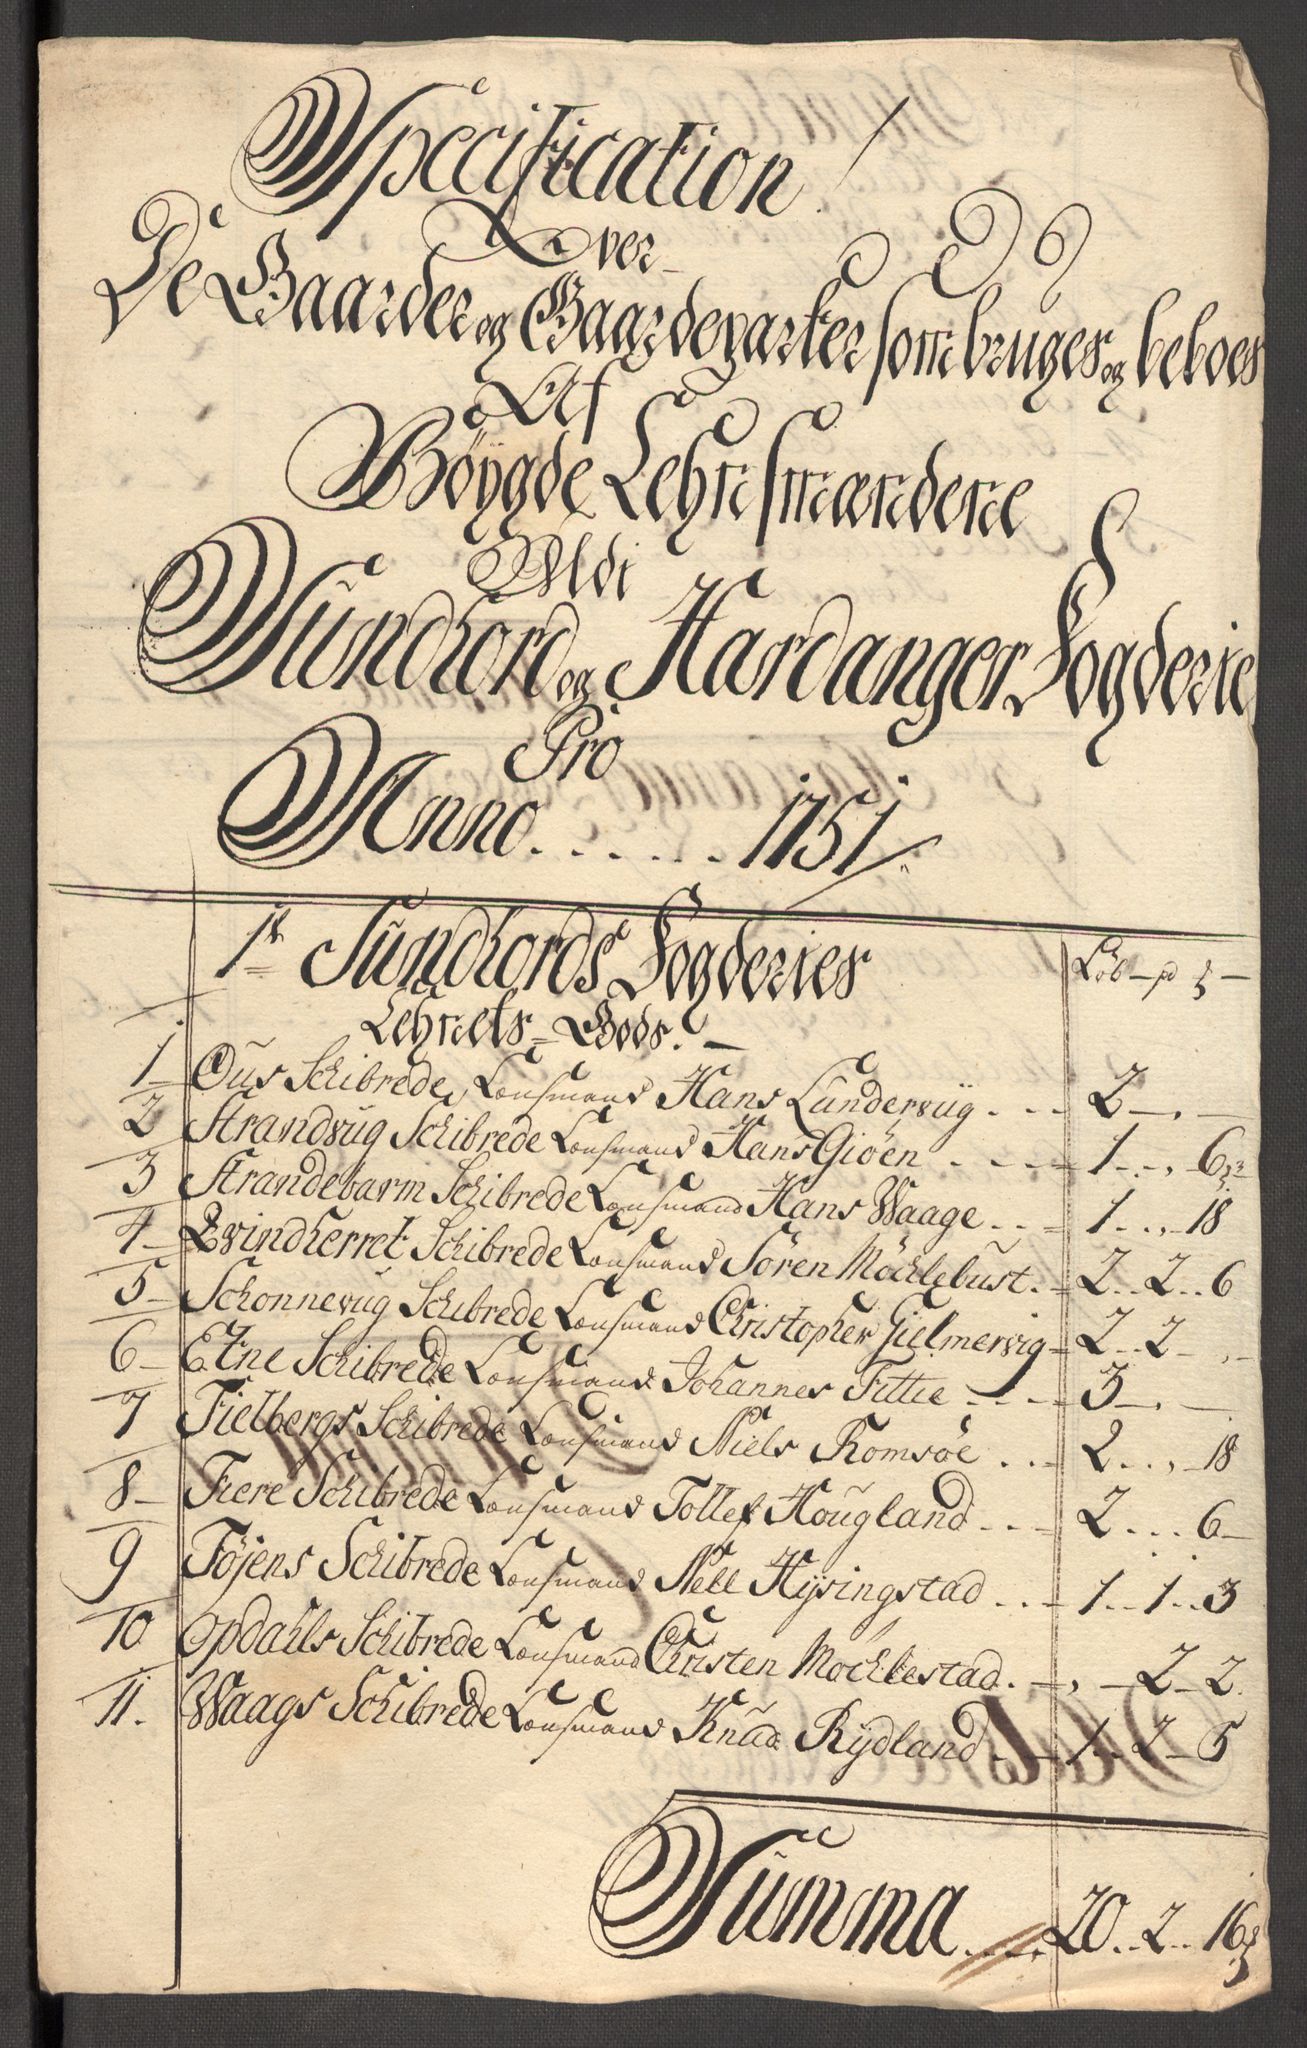 Specification
Over
De Gaarder og Gaardeparter som bruges og beboes
Af
Böygde Lehnsmændene
Udi
Sundhord og Hardanger Fogderie
Pro
Anno . . . . . . 1751
1te Sundhords Fogderies
Löb pd
Lehnets Gods.
1 Ous Schibrede Lensmand Hans Lundervüg . . . 2 – . –
2 Strandvüg Schibrede Lensmand Hans Giöen . . . 1 . . , 6
3 Strandebarm Schibrede Lensmand Hans Waage . . 1 . . , 18
4 Qvindherret Schibrede Lensmand Sören Möchlebust . 2 . . 2 . . 6
5 Schonnevüg Schibrede Lensmand Christopher Gielmervig 2 . . 2 – , –
6 Etne Schibrede Lensmand Johannes Fittie . . . 3 – . –
7 Fielbergs Schibrede Lensmand Niels Romsöe . . . 2 . . , 18
8 Fiere Schibrede Lensmand Tollef Hougland . . . 2 . . . 6
9 Föjens Schibrede Lensmand Nell Hysingstad . . . 1 . . 1 . . 3
10 Opdahls Schibrede Lensmand Christen Möchlestad . – , – 2 – 2
11. Waags Schibrede Lensmand Knud Rydland . . 1 . . 2 – 5
Summa . . . . 20 . . 2 . . 16